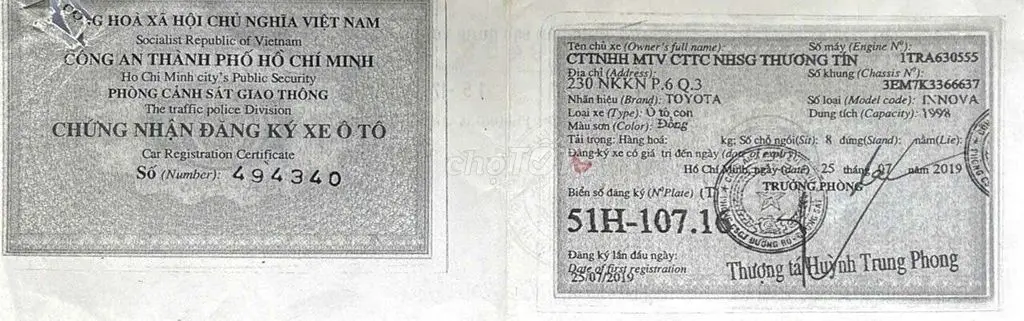 CỘNG HOÀ XÃ HỘI CHỦ NGHĨA VIỆT NAM
Socialist Republic of Vietnam
CÔNG AN THÀNH PHỐ HỒ CHÍ MINH
Ho Chi Minh city's Public Security
PHÒNG CẢNH SÁT GIAO THÔNG
The traffic police Division
CHỨNG NHẬN ĐĂNG KÝ XE Ô TÔ
Car Registration Certificate
Số (Number): 494340
Tên chủ xe (Owner's full name): Số máy (Engine Nº):
CTTNHH MTV CTTC NHSG THƯƠNG TÍN 1TRA630555
Địa chỉ (Address): Số khung (Chassis Nº):
230 NKKN P.6 Q.3 3EM7K3366637
Nhãn hiệu (Brand): TOYOTA Số loại (Model code): INNOVA
Loại xe (Type): Ô tô con Dung tích (Capacity): 1998
Màu sơn (Color): Đồng
Tải trọng: Hàng hoá: kg; Số chỗ ngồi(Sit): 8 đứng(Stand): nằm(Lie):
Đăng ký xe có giá trị đến ngày (date of expiry):
Hồ Chí Minh, ngày (date) 25 tháng 07 năm 2019
Biển số đăng ký (NºPlate) (T) TRƯỞNG PHÒNG
51H-107.1
Đăng ký lần đầu ngày:
Date of first registration
25/07/2019
Thượng tá Huỳnh Trung Phong